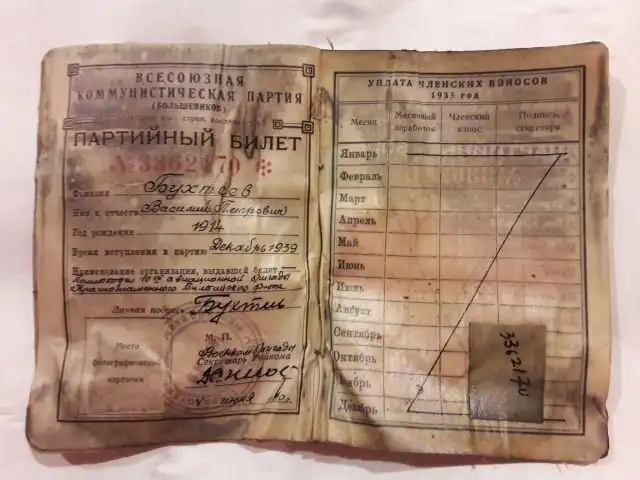 ВСЕСОЮЗНАЯ
КОММУНИСТИЧЕСКАЯ ПАРТИЯ
(БОЛЬШЕВИКОВ)
ПАРТИЙНЫЙ БИЛЕТ
№3362170
Фамилия
Имя и отчество Василий Петрович
Год рождения 1914
Время вступления в партию Декабрь 1939
Наименование организации, выдавшей билет
10й Авиационной бригады
Краснознаменного Балтийского Флота
Личная подпись
Место
фотографической
карточки
М. П.
Военком бригады
Секретарь Райкома
УПЛАТА ЧЛЕНСКИХ ВЗНОСОВ
1935 год
Месяц Месячный заработок Членский взнос Подпись секретаря
Январь
Февраль
Март
Апрель
Май
Июнь
Июль
Август
Сентябрь
Октябрь
Ноябрь
Декабрь
3362170